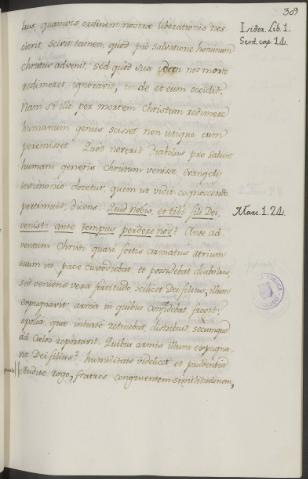 38
lus, quamvis ordinem nostrae liberationis nes
cierit, scivit tamen, quod pro salvatione hominum
Christus advenit, sed quod sua idem nos morte
redimeret, ignoravit, unde et eum occidit.
Nam si ille per mortem Christum redimere
humanum genus scisset non utique eum
peremisset. Quod noverit Diabolus pro salute
humani generis Christum venisse, evangelii
testimonio docetur, quem ut vidit cognoscendo
pertimuit, dicens: Quid nobis, et tibi fili Dei,
venisti ante tempus perdere nos? Ante ad
ventum Christi quasi fortis armatus atrium
suum in pace custodiebat et possidebat diabolus,
sed veniens vera fortitudo scilicet Dei filius, illum
expugnavit, arma in quibus confidebat fregit,
spolia, quae intus retinebat distribuit secumque
ad Caelos reportavit. Quibus armis illum expugna
vit Dei filius? humilitatis videlicet et prudentiae
Audite rogo, fratres congruentem similitudinem,
Isidor. Lib. 1.
Sent. cap. 14.
Marc. 1. 24.